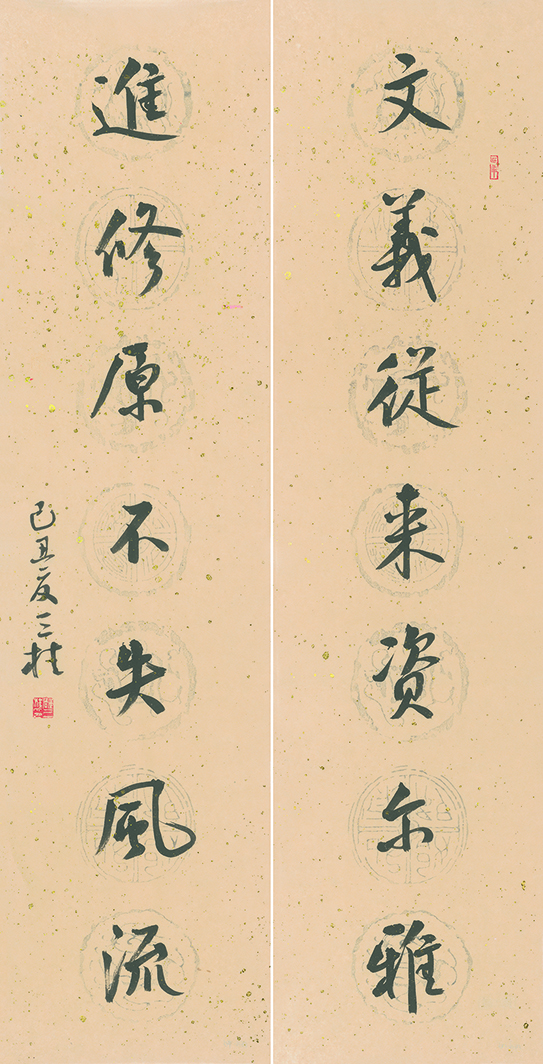 文義從来资尔雅
進修原不失風流
己丑夏三桂